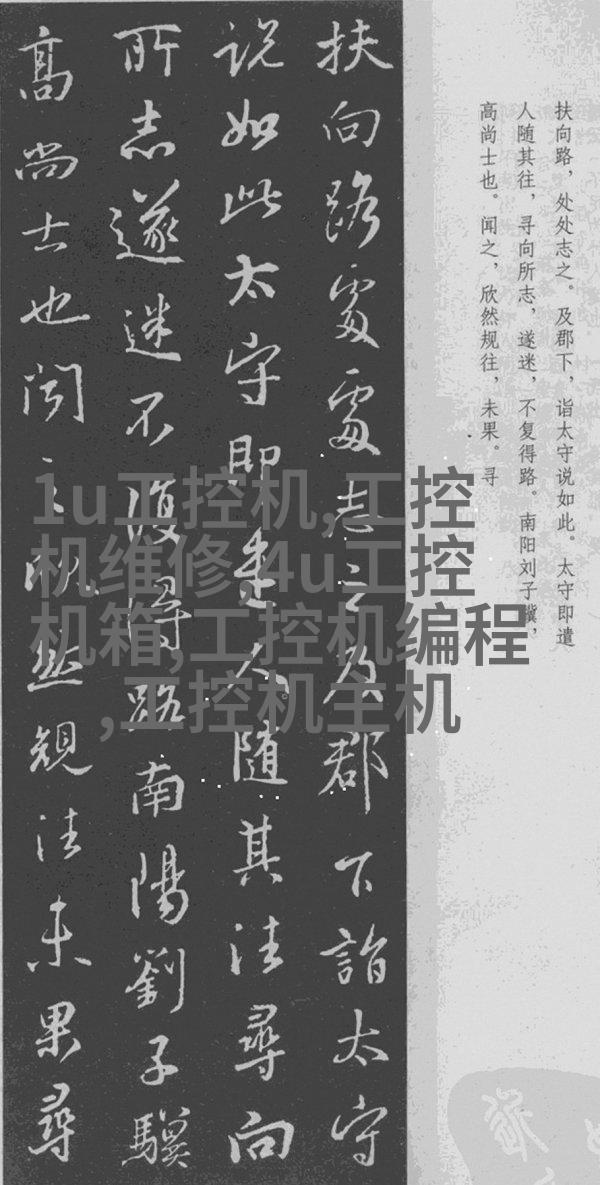 扶向路，处处志之。及郡下，诣太守说如此。太守即遣
人随其往，寻向所志，遂迷，不复得路。南阳刘子骥，
高尚士也。闻之，欣然规往，未果。寻
扶向路處處志之及郡下詣太守
説如此太守即遣人随其往尋向
所志遂迷不復得路南陽劉子驥
高尚士也聞之欣然規往未果尋
1u工控机,工控
机维修,4u工控
机箱,工控机编程
,工控机主机